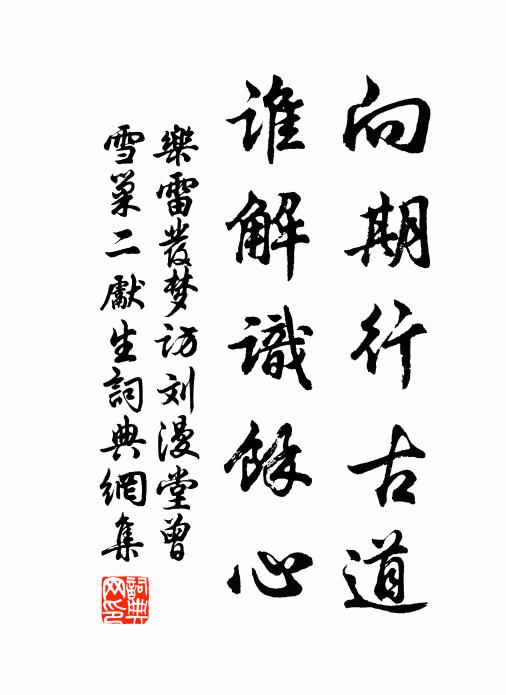 向期行古道
谁解識餘心
樂雷發梦访刘漫堂曾
雪巢二獻生詞典網集
詞典网印